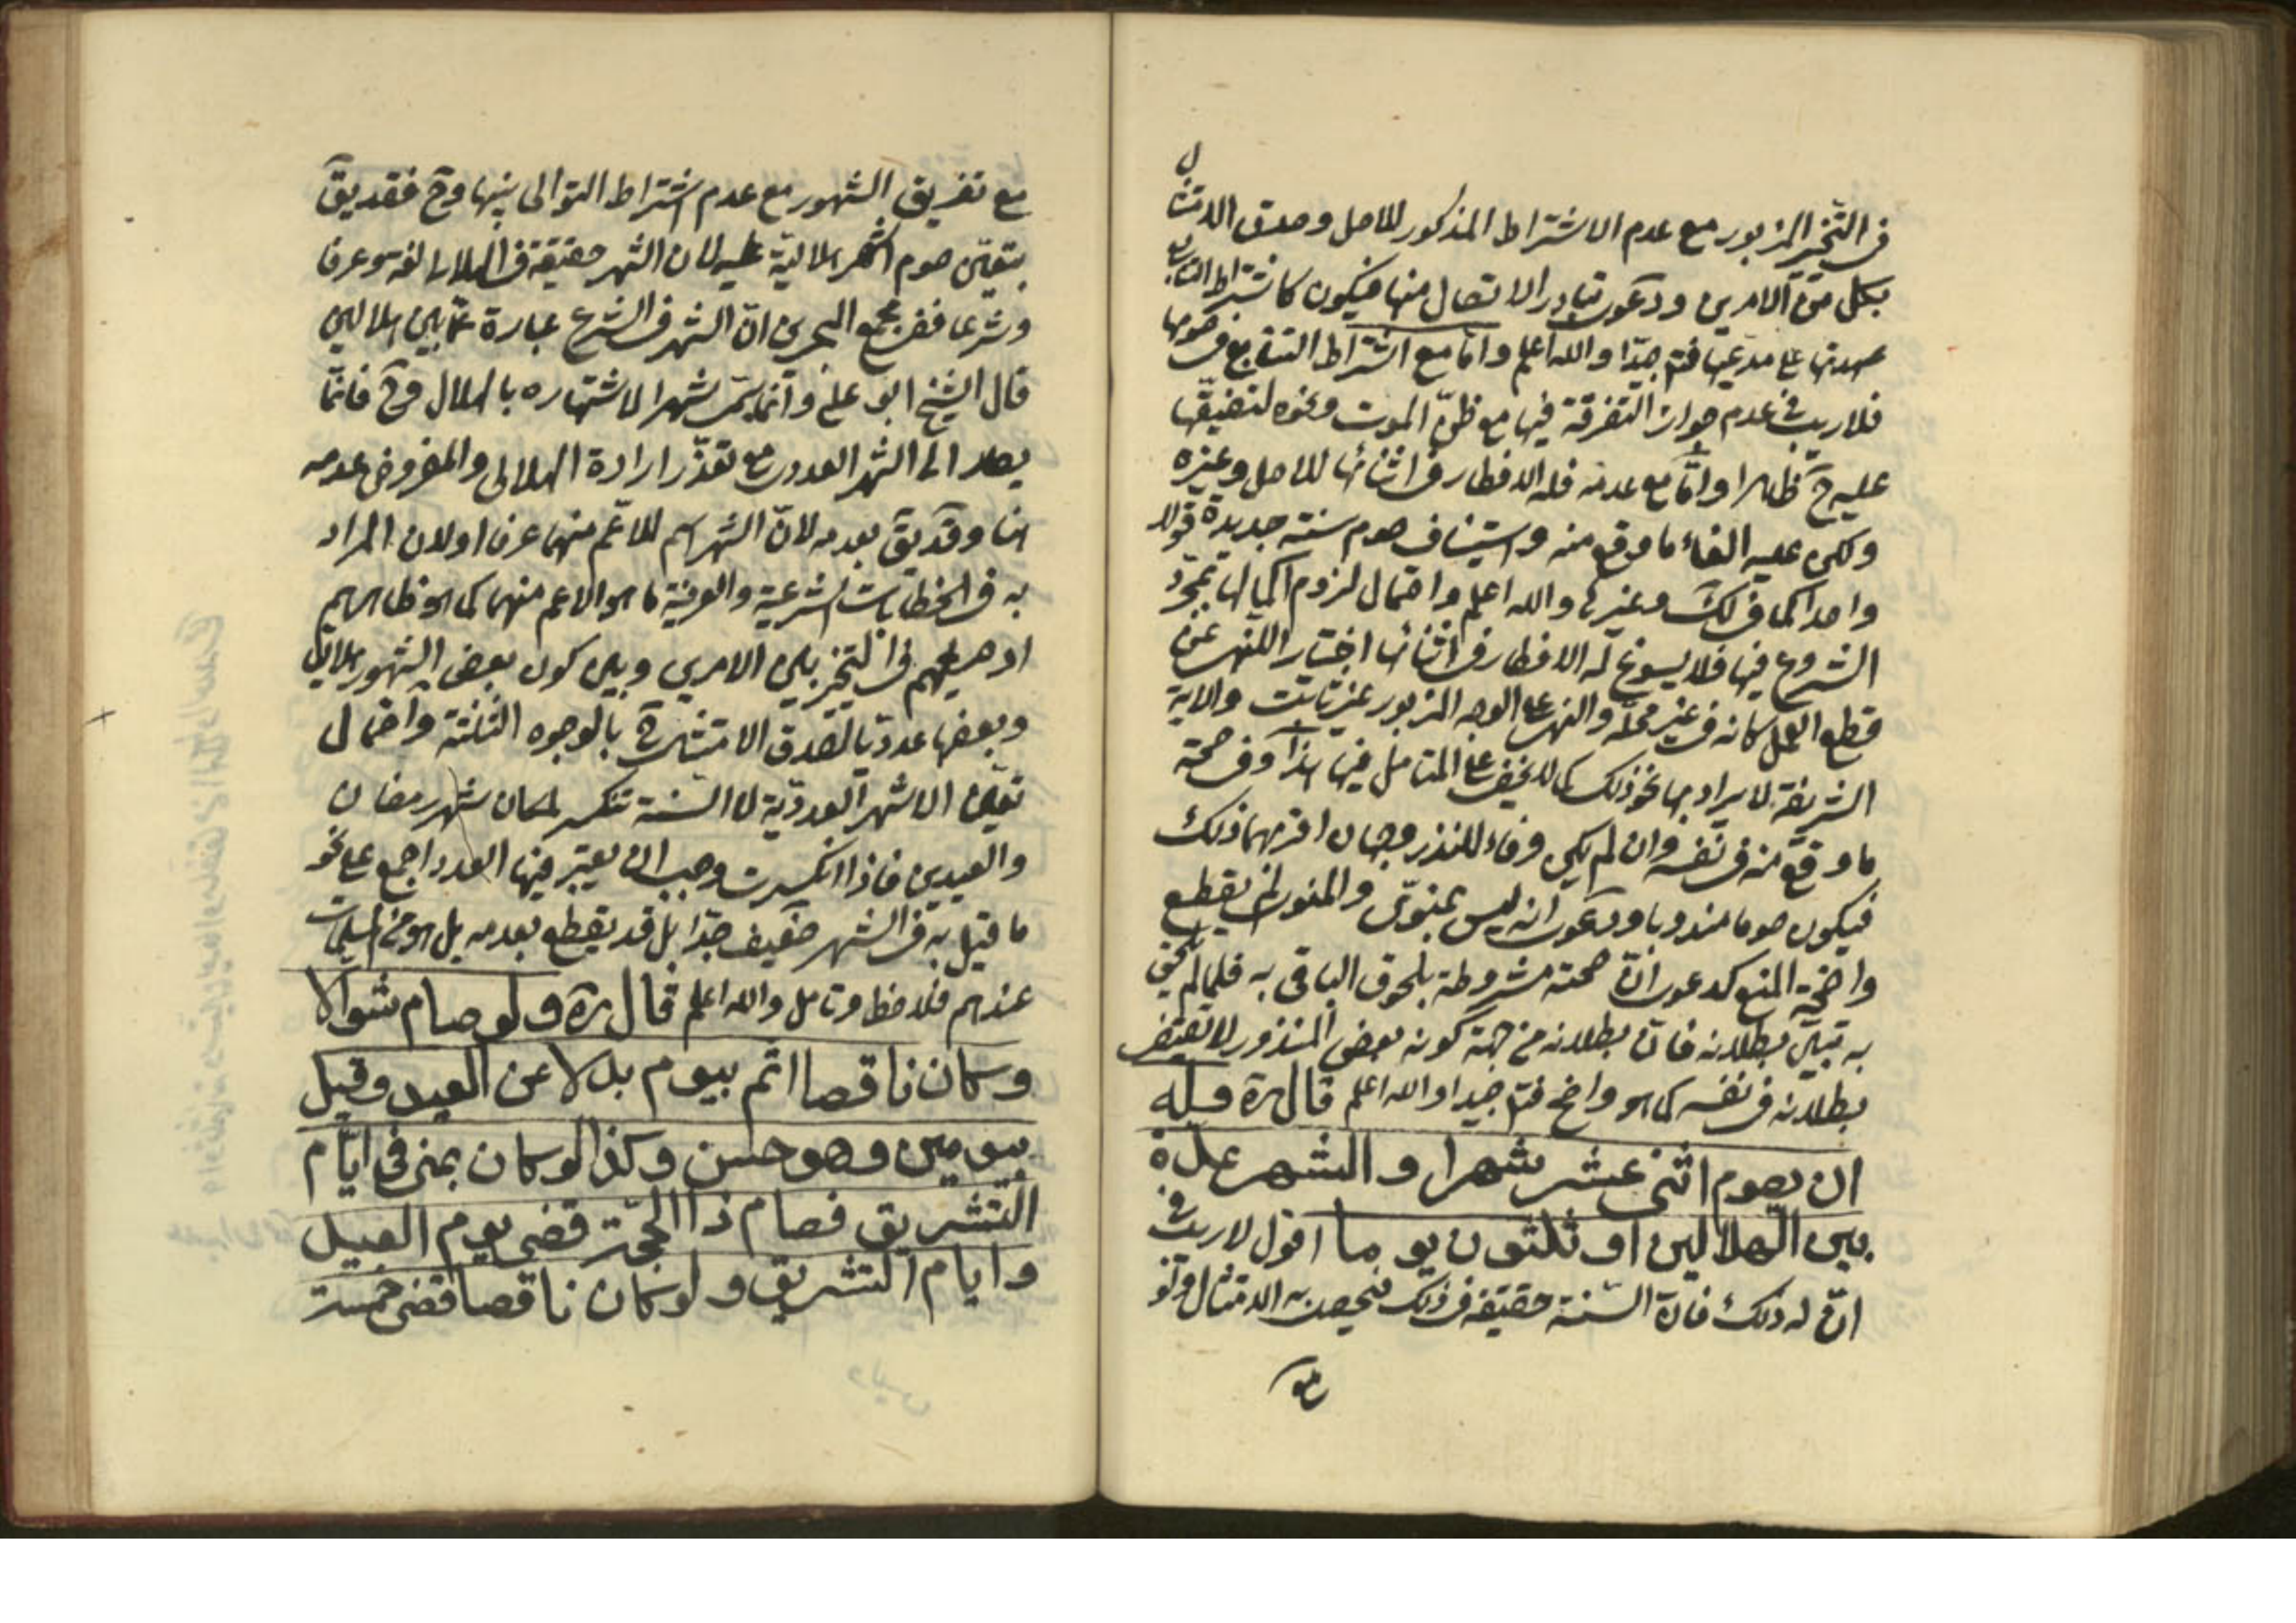 في التخير المزبور مع عدم الاشتراط المذكور للاصل وصدق الامتثال
بكل من الامرين ودعوى تبادر الاتصال منها فيكون كاشتراط التتابع
عهدتها على مدعيها فتم جيدا والله اعلم واما مع اشتراط التتابع في صومها
فلا ريب في عدم جواز التفرقة فيها مع ظن الموت ونحوه لتضيقها
عليه ح ظاهرا واما مع عدمه فله الافطار في اثنائها للاصل وغيره
ولكن عليه الغاء ما وقع منه واستيناف صوم سنة جديدة قولا
واحدا كما في لك وغيرها والله اعلم واحتمال لزوم اكمالها بمجرد
الشروع فيها فلا يسوغ له الافطار في اثنائها اختيارا للنهى عن
قطع العمل كانه في غير محله والنهى على الوجه المزبور غير ثابت والاية
الشريفة لا يراد بها نحو ذلك كما لا يخفى على المتامل فيها هذا وفي صحة
ما وقع منه في نفسه وان لم يكن وفاء للنذر وجهان اقربهما ذلك
فيكون صوما مندوبا ودعوى انه ليس بمنوى والمنوى لم يقطع
واضحة المنع كدعوى ان صحته مشروطة بلحوق الباقى به فلما لم يلحق
به تبين بطلانه فان بطلانه من جهة كونه بعض المنذور لا يقتضى
بطلانه في نفسه كما هو واضح فتم جيدا والله اعلم قال ره وله
ان يصوم اثنى عشر شهرا والشهر عدة
بين الهلالين او ثلثون يوما اقول لا ريب في
ان له ذلك فان السنة حقيقة في ذلك فيحصل به الامتثال ولو
مع
مع تفريق الشهور مع عدم اشتراط التوالى بينها وح فقد يق
بتعين صوم اشهر هلالية عليه لان الشهر حقيقة في الهلالى لغة وعرفا
وشرعا ففي مجمع البحرين ان الشهر في الشرع عبارة عما بين هلالين
قال الشيخ ابو على وانما سمى شهرا لاشتهاره بالهلال وح فانما
يصار الى الشهر العددى مع تعذر ارادة الهلالى والمفروض عدمه
هنا وقد يق بعدمه لان الشهر اسم للاعم منهما عرفا او لان المراد
به في الخطابات الشرعية والعرفية ما هو الاعم منهما كما هو ظاهرهم
او صريحهم في التخير بين الامرين وبين كون بعض الشهور هلاليا
وبعضها عدديا لصدق الامتثال بالوجوه الثلثة واحتمال
تعين الاشهر العددية لان السنة تنكسر لمكان شهر رمضان
والعيدين فاذا انكسرت وجب ان يعتبر فيها العدد اجمع على نحو
ما قيل به في الشهر ضعيف جدا بل قد يقطع بعدمه بل هو من المسلمات
عندهم فلاحظ وتامل والله اعلم قال ره ولو صام شوالا
وكان ناقصا اتم بيوم بدلا عن العيد وقيل
بيومين وهو حسن وكذا لو كان بمنى في ايام
التشريق فصام ذا الحجة قضى يوم العيد
وايام التشريق ولو كان ناقصا قضى خمسة